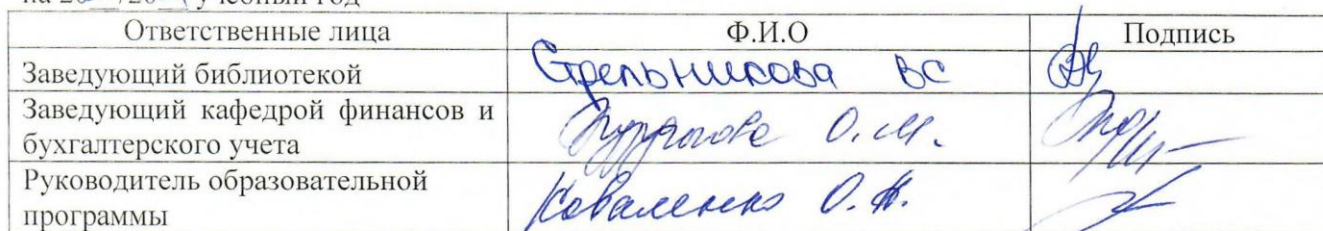 учебный год
Ответственные лица Ф.И.О Подпись
Заведующий библиотекой Стрельникова ВС
Заведующий кафедрой финансов и
бухгалтерского учета О.М.
Руководитель образовательной Коваленко О.
программы